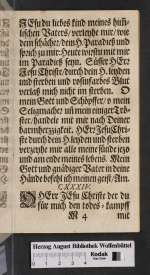 JEsu du liebes kind meines himli-
schen Vaters / verleyhe mir / wie
dem schächer / dein H. Paradeiß und
sprich zu mir: Heute wirstu mit mir
im Paradeiß seyn. Süsser HErr
JEsu Christe / durch dein H. leyden
und sterben und rosinfarbes Blut
verlaß mich nicht im sterben. O
mein Gott und Schöpffer / o mein
Seligmacher / uñ mein einiger Trö-
ster / handele mit mir nach Deiner
barmhertzigkeit. HErr JEsu Chri-
ste durch dein H leyden und sterben
verzeyhe mir alle meine sünde ietzo
und am ende meines lebens. Mein
Gott und gnädiger Vater in deine
Hände befehl ich meinen geist. Am.
CXXXIV.
O HErr JEsu Christe der du
für mich den todes-kampff
M 4 mit
Herzog August Bibliothek Wolfenbüttel
Kodak